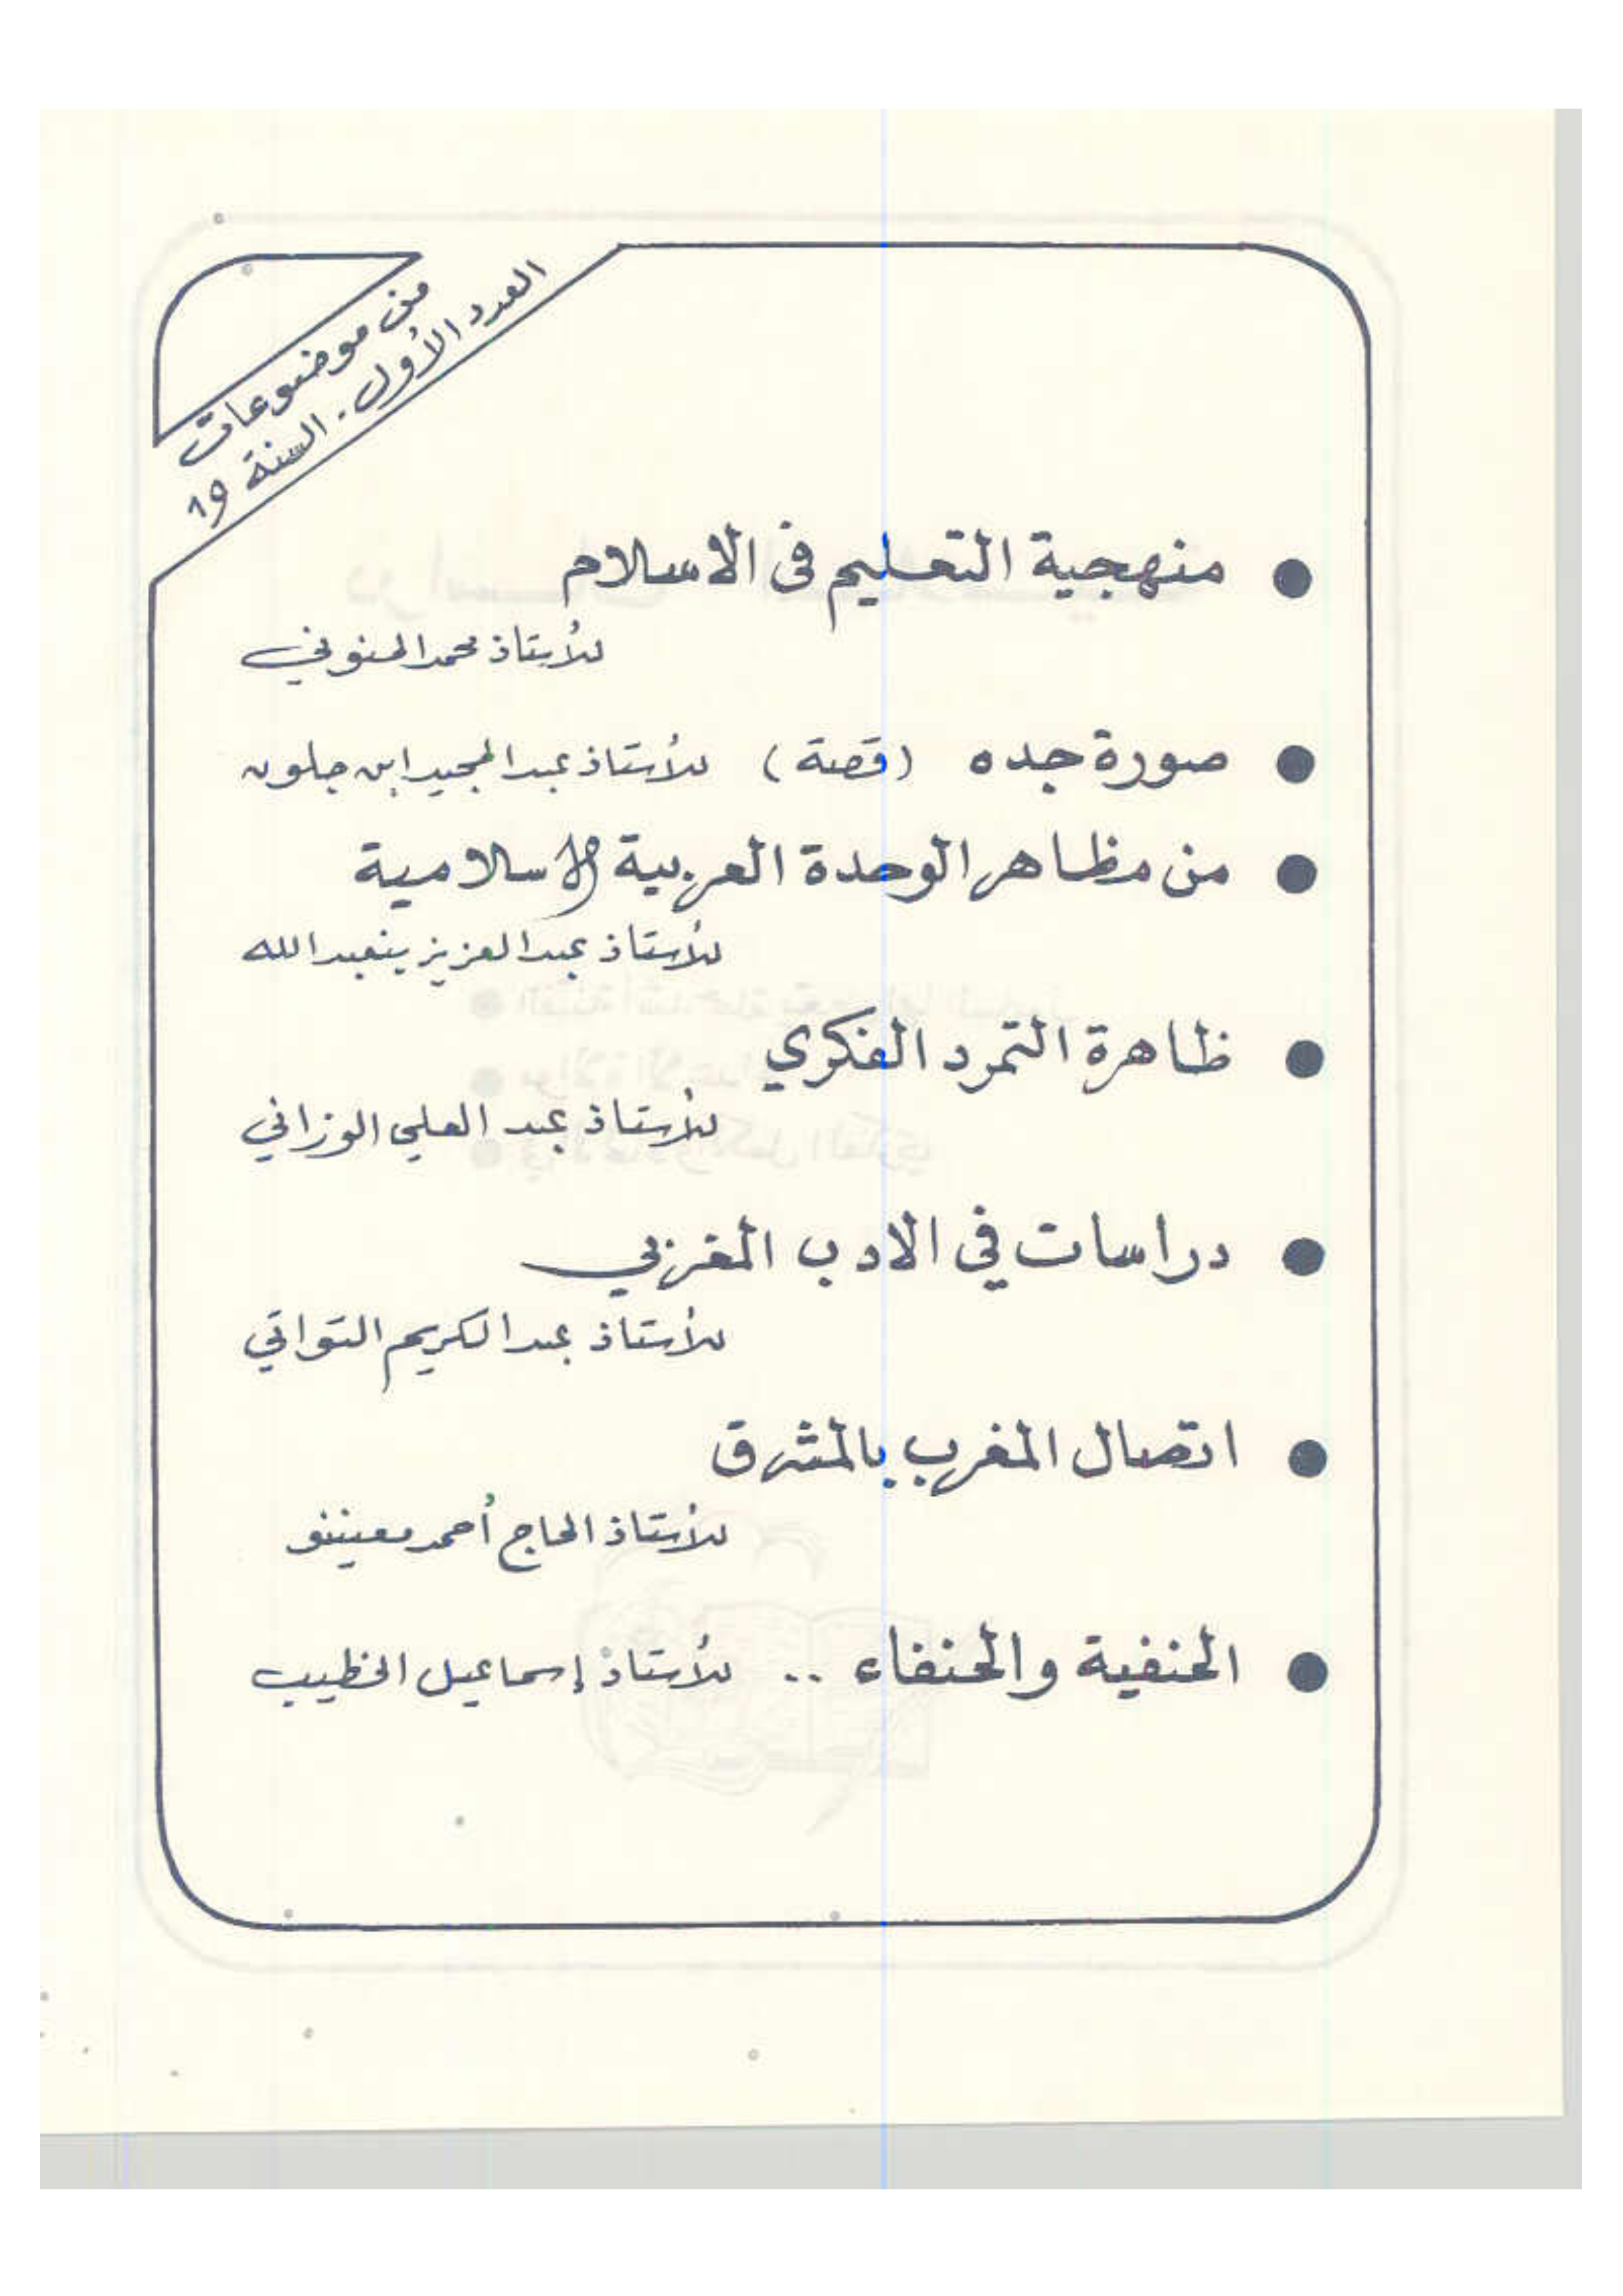 من موضوعات
العدد الأول. السنة 19
● منهجية التعليم في الاسلام
للأستاذ محمد المنوني
● صورة جده (قصة) للأستاذ عبد المجيد ابن جلون
● من مظاهر الوحدة العربية الإسلامية
للأستاذ عبد العزيز بنعبد الله
● ظاهرة التمرد الفكري
للأستاذ عبد العلي الوزاني
● دراسات في الادب المغربي
للأستاذ عبد الكريم التواتي
● اتصال المغرب بالمشرق
للأستاذ الحاج أحمد معنينو
● الحنفية والحنفاء .. للأستاذ إسماعيل الخطيب